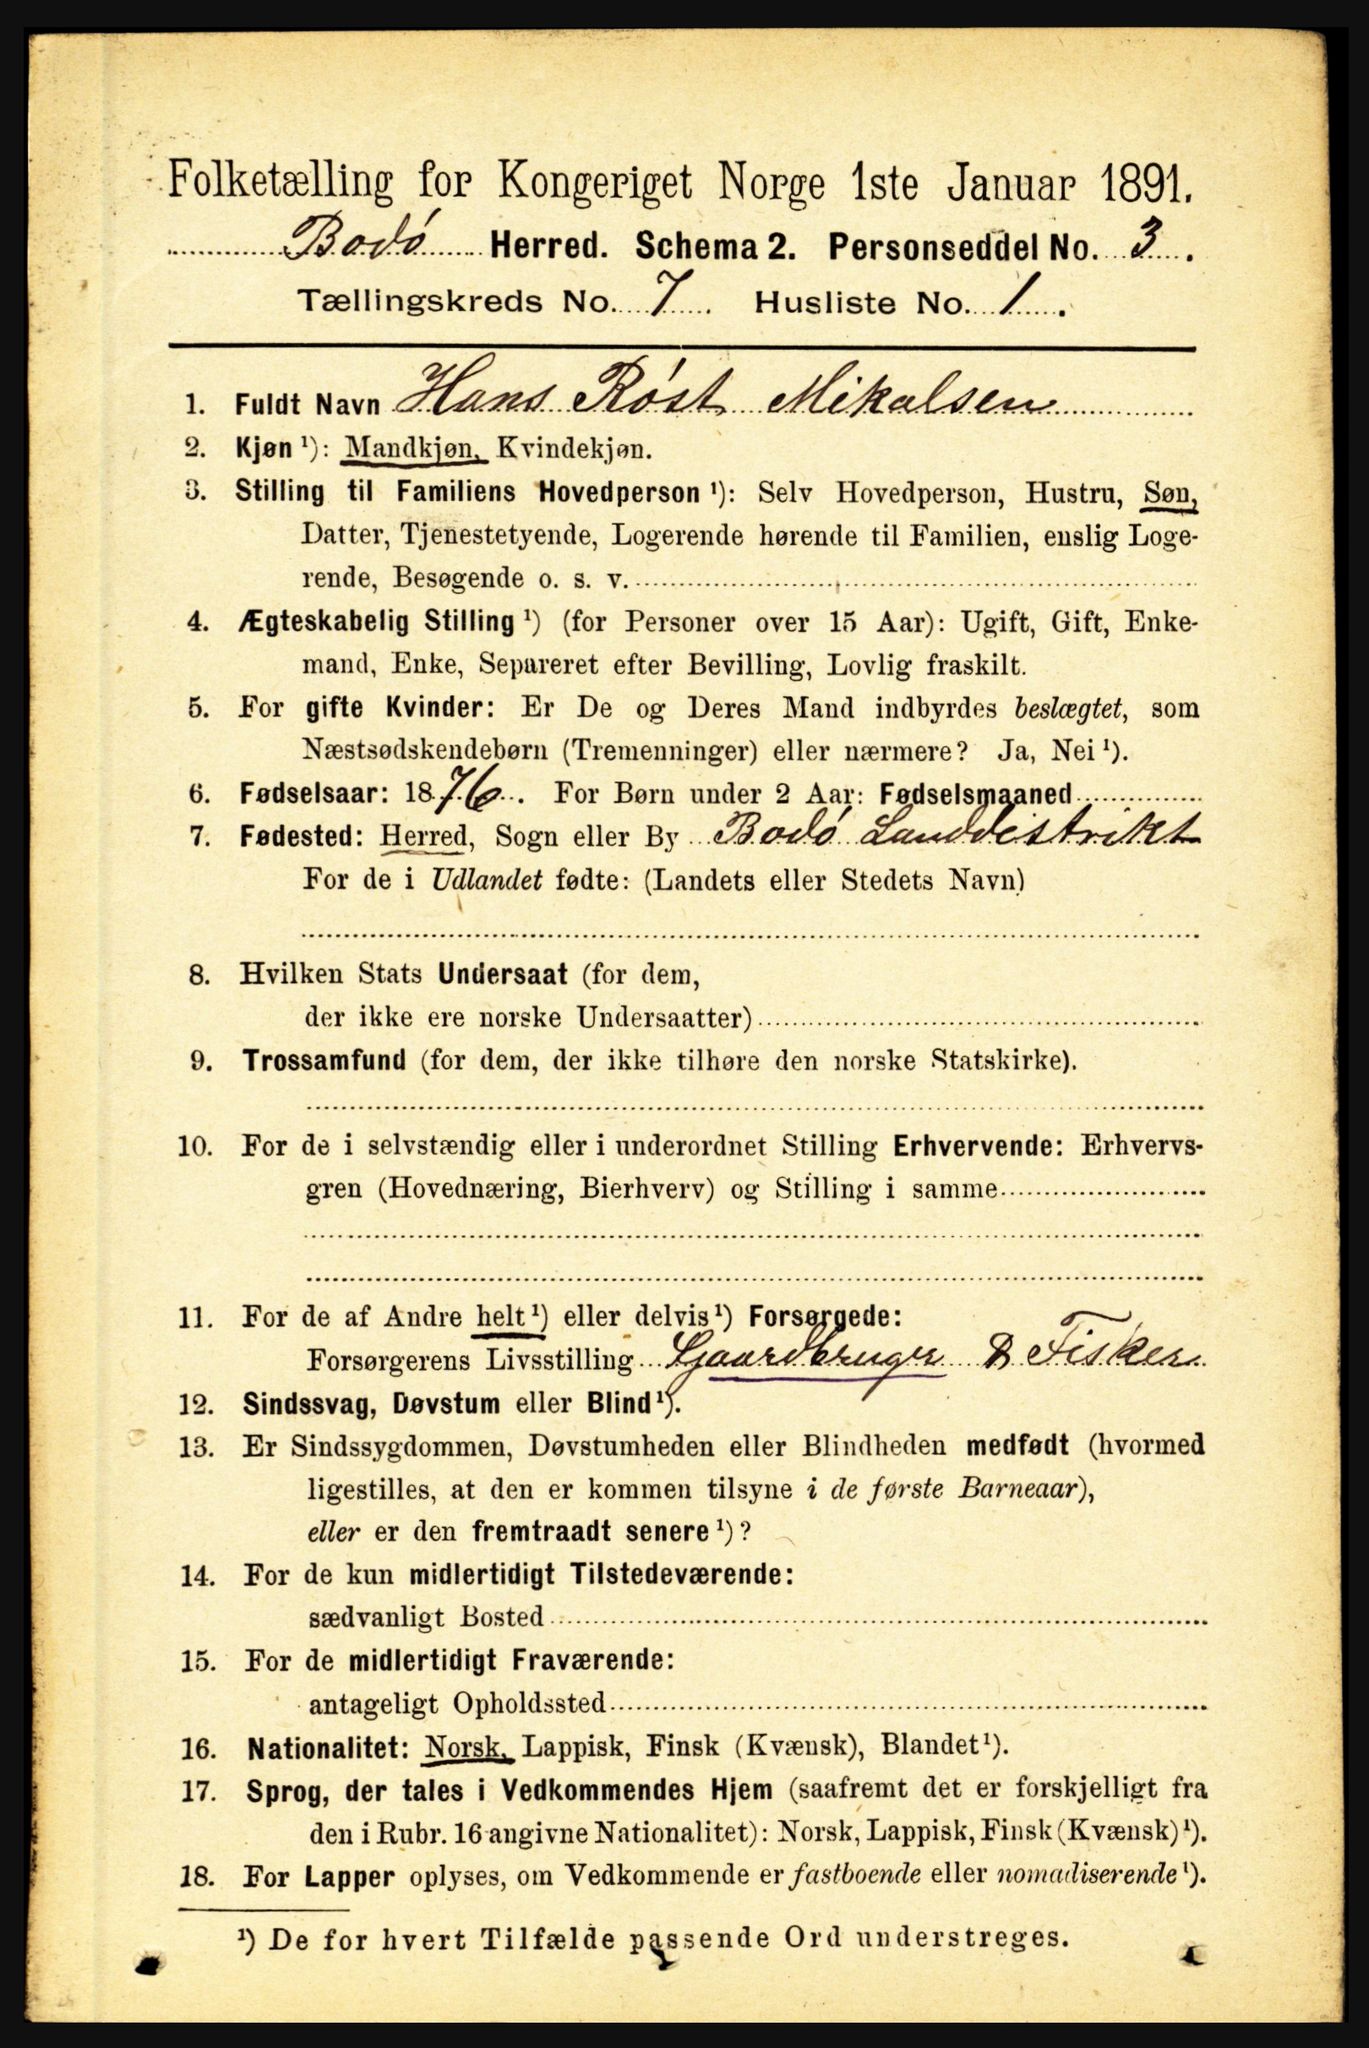 Folketælling for Kongeriget Norge 1ste Januar 1891.
Bodø Herred. Schema 2. Personseddel No. 3.
Tællingskreds No. 7. Husliste No. 1.
1. Fuldt Navn Hans Røst Mikalsen
2. Kjøn ¹): Mandkjøn, Kvindekjøn.
3. Stilling til Familiens Hovedperson ¹): Selv Hovedperson, Hustru, Søn,
Datter, Tjenestetyende, Logerende hørende til Familien, enslig Loge-
rende, Besøgende o. s. v.
4. Ægteskabelig Stilling ¹) (for Personer over 15 Aar): Ugift, Gift, Enke-
mand, Enke, Separeret efter Bevilling, Lovlig fraskilt.
5. For gifte Kvinder: Er De og Deres Mand indbyrdes beslægtet, som
Næstsødskendebørn (Tremenninger) eller nærmere? Ja, Nei ¹).
6. Fødselsaar: 1876. For Børn under 2 Aar: Fødselsmaaned
7. Fødested: Herred, Sogn eller By Bodø Landdistrikt
For de i Udlandet fødte: (Landets eller Stedets Navn)
8. Hvilken Stats Undersaat (for dem,
der ikke ere norske Undersaatter)
9. Trossamfund (for dem, der ikke tilhøre den norske Statskirke).
10. For de i selvstændig eller i underordnet Stilling Erhvervende: Erhvervs-
gren (Hovednæring, Bierhverv) og Stilling i samme
11. For de af Andre helt ¹) eller delvis ¹) Forsørgede:
Forsørgerens Livsstilling Gaardbruger & Fisker
12. Sindssvag, Døvstum eller Blind ¹).
13. Er Sindssygdommen, Døvstumheden eller Blindheden medfødt (hvormed
ligestilles, at den er kommen tilsyne i de første Barneaar),
eller er den fremtraadt senere ¹)?
14. For de kun midlertidigt Tilstedeværende:
sædvanligt Bosted
15. For de midlertidigt Fraværende:
antageligt Opholdssted
16. Nationalitet: Norsk, Lappisk, Finsk (Kvænsk), Blandet ¹).
17. Sprog, der tales i Vedkommendes Hjem (saafremt det er forskjelligt fra
den i Rubr. 16 angivne Nationalitet): Norsk, Lappisk, Finsk (Kvænsk) ¹).
18. For Lapper oplyses, om Vedkommende er fastboende eller nomadiserende ¹).
¹) De for hvert Tilfælde passende Ord understreges.